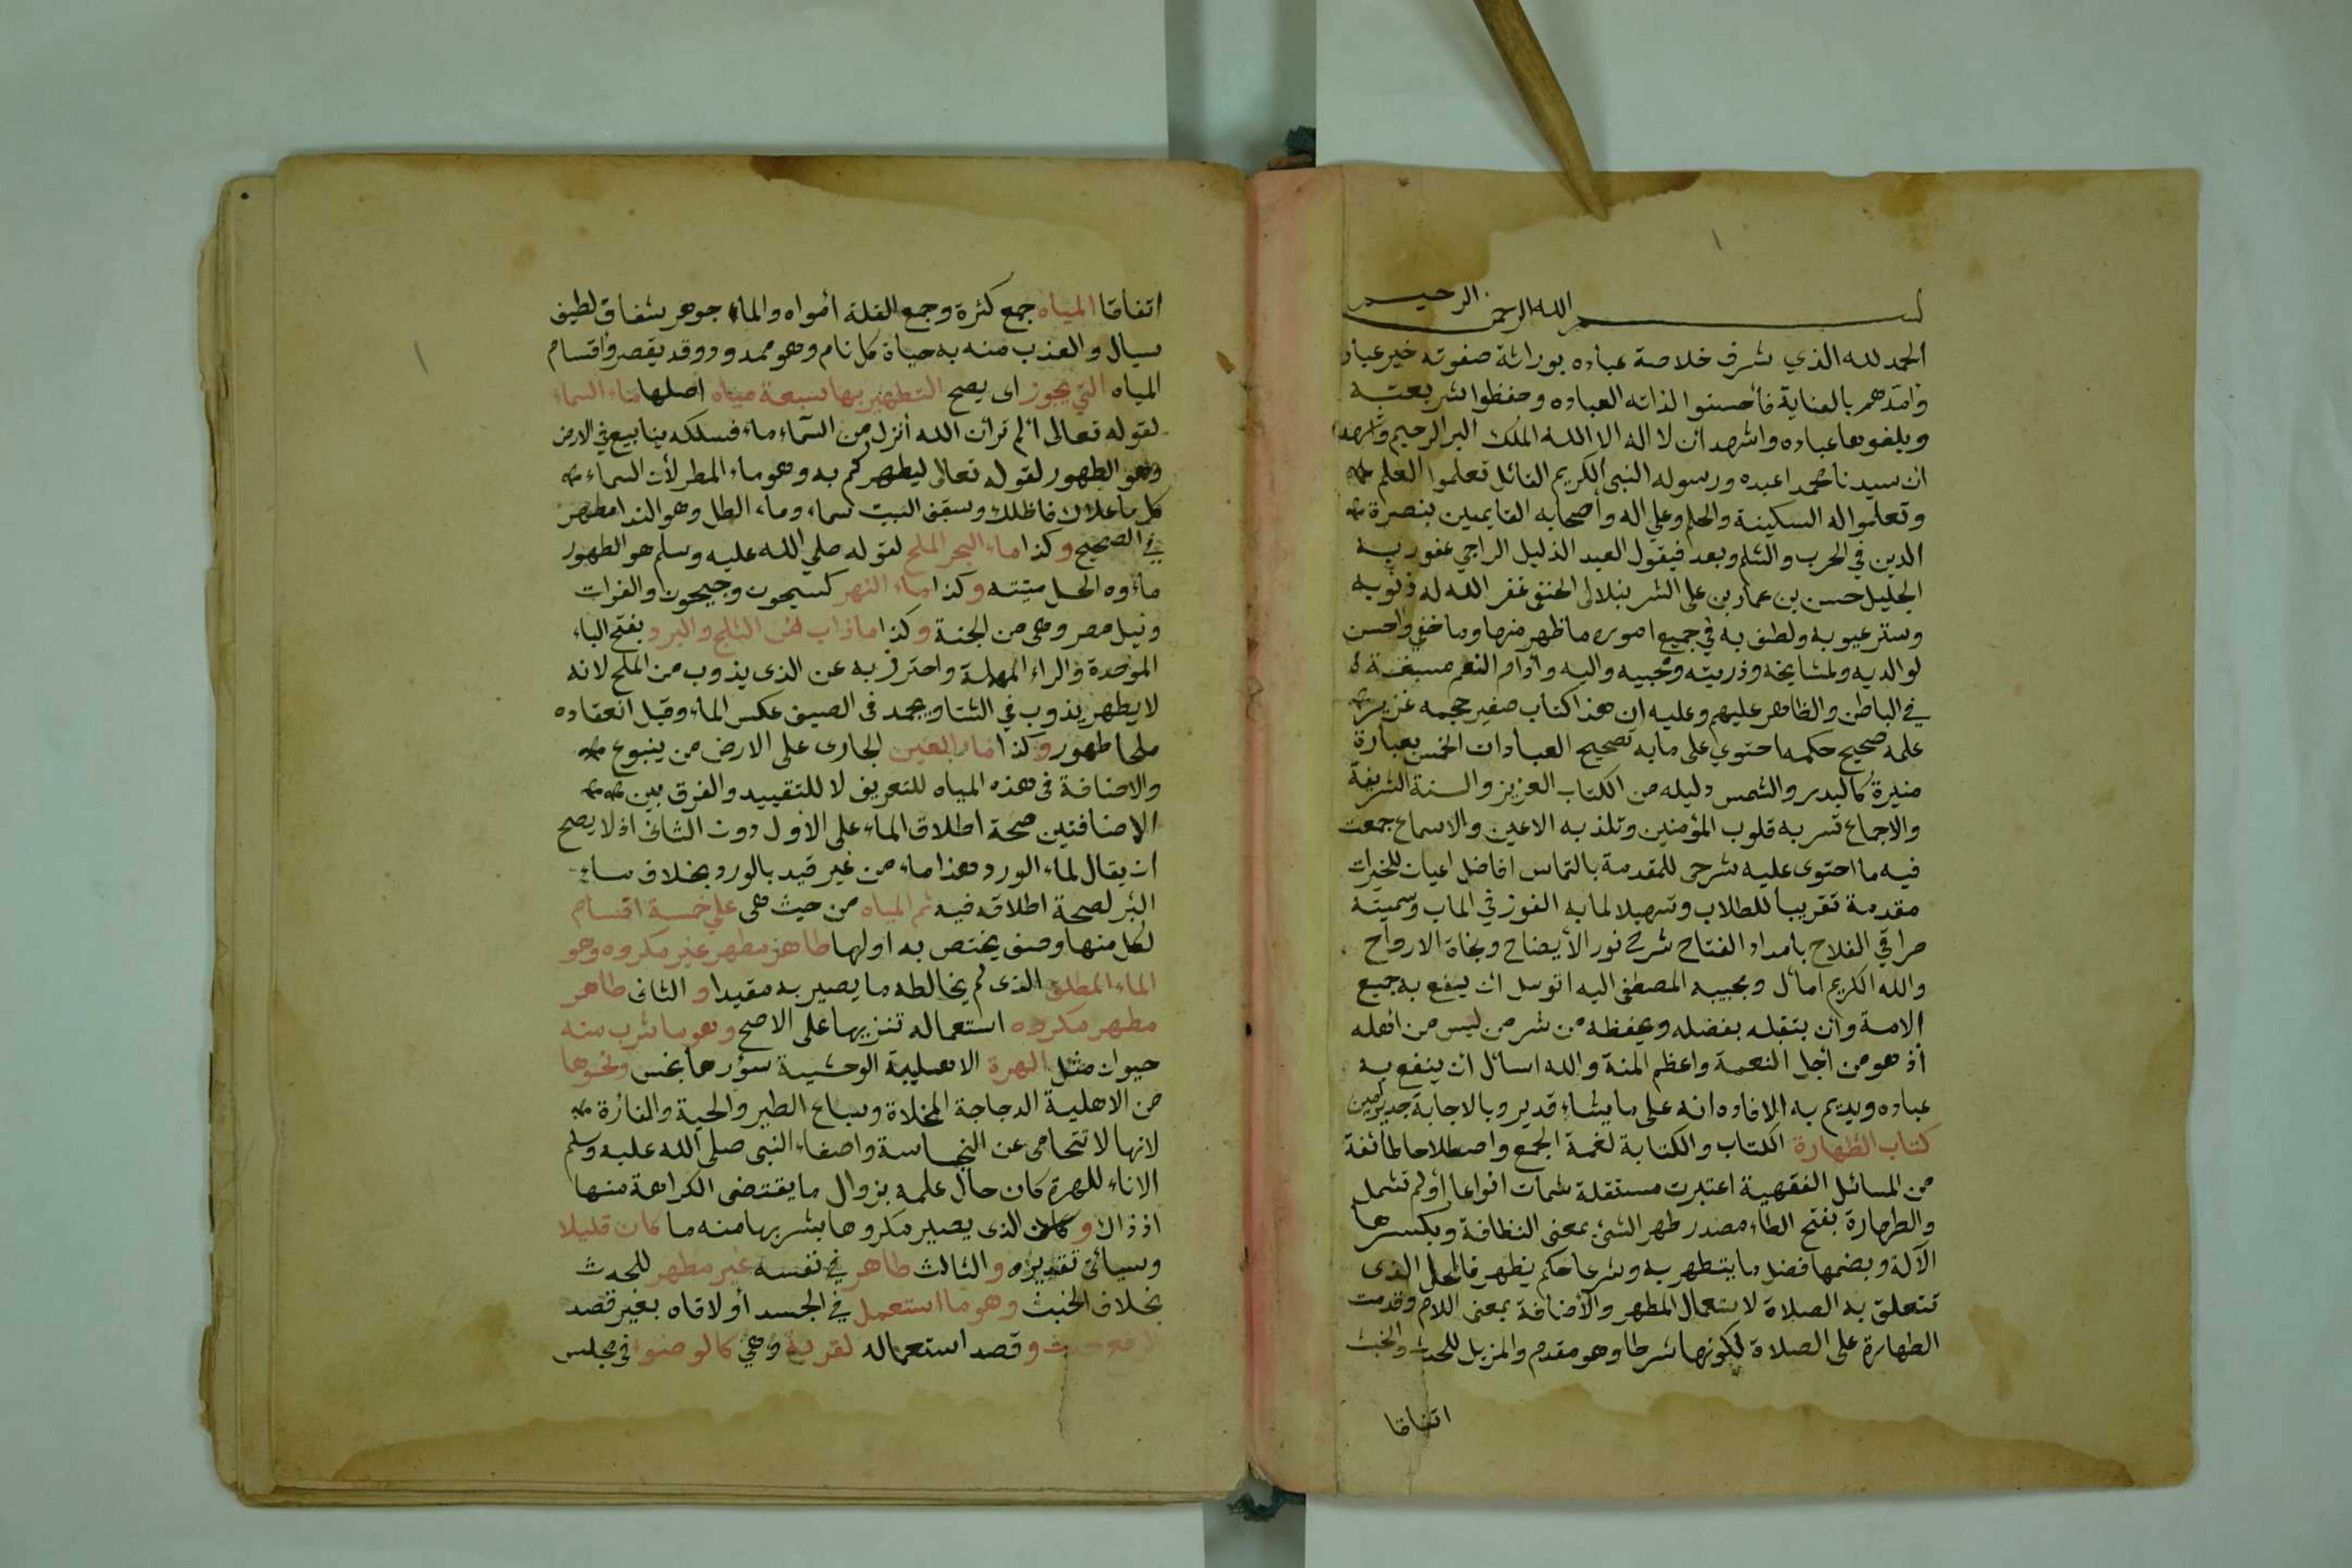 بسم الله الرحمن الرحيم
الحمد لله الذي شرف خلاصة عباده بوراثة صفوته خير عباد
وامدهم بالعناية فأحسنوا لذاته العباده وحفظوا شريعته
وبلغوها عباده واشهد ان لا اله الا الله الملك البر الرحيم واشهد
ان سيدنا محمدا عبده ورسوله النبي الكريم القائل تعلموا العلم
وتعلموا له السكينة والحلم وعلى اله وأصحابه القايمين بنصرة
الدين في الحرب والسلم وبعد فيقول العبد الذليل الراجي عفو ربه
الجليل حسن بن عمار بن علي الشرنبلالي الحنفي غفر الله له ذنوبه
وستر عيوبه ولطف به في جميع اموره ما ظهر منها وما خفي واحسن
لوالديه ولمشايخه وذريته ومحبيه واليه وأدام النعم مسبغة
في الباطن والظاهر عليهم وعليه ان هذا كتاب صغير حجمه غزير
علمه صحيح حكمه احتوي على ما به تصحيح العبادات الخمس بعبارة
منيرة كالبدر والشمس دليله من الكتاب العزيز والسنة الشريفة
والاجماع تسر به قلوب المؤمنين وتلذ به الاعين والاسماع جمعت
فيه ما احتوى عليه شرحى للمقدمة بالتماس افاضل اعيان للخيرات
مقدمة تقريبا للطلاب وتسهيلا لما به الفوز في الماب وسميته
مراقي الفلاح بامداد الفتاح شرح نور الأيضاح ونجاة الارواح
والله الكريم اسأل وبحبيبه المصطفى اليه اتوسل ان ينفع به جميع
الامة وأن يتقبله بفضله ويحفظه من شر من ليس من اهله
أذ هو من أجل النعمة واعظم المنة والله اسائل ان ينفع به
عباده ويديم به الافاده انه على ما يشاء قدير وبالاجابة جدير امين
كتاب الطهارة الكتاب والكتابة لغة الجمع واصطلاحا طائفة
من المسائل الفقهية اعتبرت مستقلة شملت انواعا أو لم تشمل
والطهارة بفتح الطاء مصدر طهر الشئ بمعنى النظافة وبكسرها
الآلة وبضمها فضل ما يتطهر به وشرعا حكم يظهر بالمحل الذى
تتعلق به الصلاة لاستعمال المطهر والأضافة بمعنى اللام وقدمت
الطهارة على الصلاة لكونها شرطا وهو مقدم والمزيل للحدث والخبث
اتفاقا
اتفاقا المياه جمع كثرة وجمع القلة أمواه والماء جوهر شفاف لطيف
سيال والعذب منه به حياة كل نام وهو ممدود وقد يقصر واقسام
المياه التي يجوز اى يصح التطهير بها سبعة مياه اصلها ماء السماء
لقوله تعالى ألم تر أن الله أنزل من السماء ماء فسلكه ينابيع في الارض
وهو الطهور لقوله تعالى ليطهركم به وهو ماء المطر لأن السماء
كل ما علاك فاظلك وسقف البيت سماء وماء الطل وهو الندا مطهر
في الصحيح وكذا ماء البحر الملح لقوله صلي الله عليه وسلم هو الطهور
ماءوه الحل ميتته وكذا ماء النهر كسيحون وجيحون والفرات
ونيل مصر وهى من الجنة وكذا ماذاب من الثلج والبرد بفتح الباء
الموحدة والراء المهملة واحترز به عن الذى يذوب من الملح لانه
لا يطهر يذوب في الشتا ويجمد فى الصيف عكس الماء وقبل انعقاده
ملحا طهور وكذا ماء العين الجارى على الارض من ينبوع
والاضافة فى هذه المياه للتعريف لا للتقييد والفرق بين
الاضافتين صحة اطلاق الماء على الاول دون الثانى اذ لا يصح
ان يقال لماء الورد هذا ماء من غير قيد بالورد بخلاف ماء
البئر لصحة اطلاقه فيه ثم المياه من حيث هى على خمسة اقسام
لكل منها وصف يختص به اولها طاهر مطهر غير مكروه وهو
الماء المطلق الذى لم يخالطه ما يصير به مقيدا و الثانى طاهر
مطهر مكروه استعماله تنزيها على الاصح وهو ما شرب منه
حيوان مثل الهرة الاهلية الوحشية سؤرها نجس ونحوها
من الاهلية الدجاجة المخلاة وسباع الطير والحية والفارة
لانها لا تتحامى عن النجاسة واصغاء النبى صلى الله عليه وسلم
الاناء للهرة كان حال علمه بزوال ما يقتضى الكراهة منها
اذ ذاك و كان الذى يصير مكروها بشربها منه ما كان قليلا
وسيأتى تقديره والثالث طاهر في نفسه غير مطهر للحدث
بخلاف الخبث وهو ما استعمل في الجسد أو لاقاه بغير قصد
لرفع حدث و قصد استعماله لقربة وهي كالوضوء فى مجلس